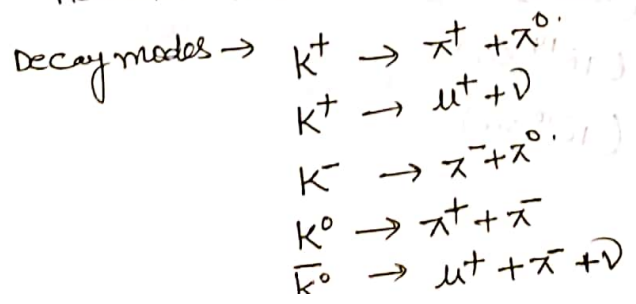 Decay modes → K⁺ → π⁺ + π⁰.
K⁺ → μ⁺ + ν
K⁻ → π⁻ + π⁰.
K⁰ → π⁺ + π⁻
K̅⁰ → μ⁺ + π⁻ + ν